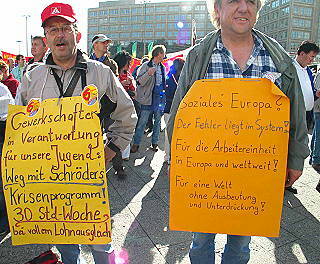 Gewerkschafter
in Verantwortung
für unsere Jugend:
Weg mit Schröders
Krisenprogramm!
30 Std-Woche
bei vollem Lohnausgleich
Soziales Europa?
Der Fehler liegt im System!
Für die Arbeitereinheit
in Europa und weltweit!
Für eine Welt
ohne Ausbeutung
und Unterdrückung!